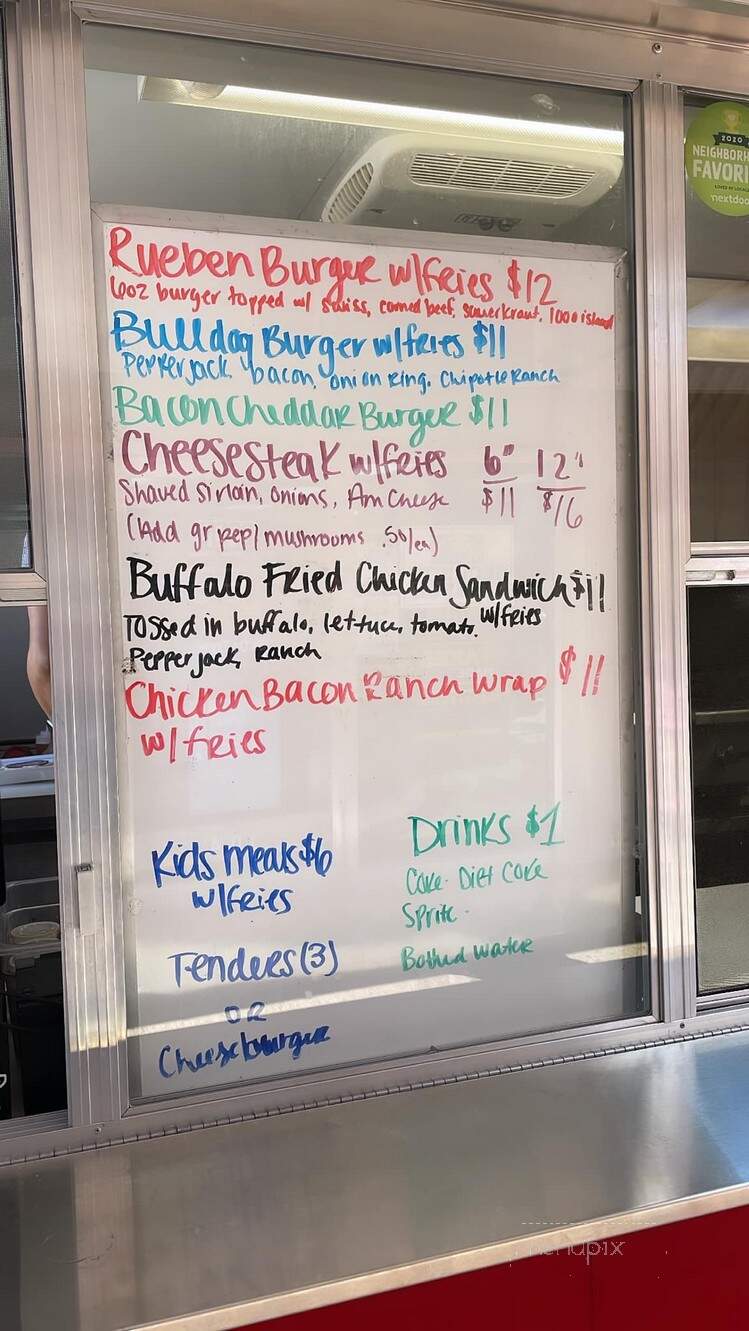 Rueben Burger w/fries $12
6oz burger topped w/ swiss, corned beef, sauerkraut, 1000 island
Bulldog Burger w/fries $11
Pepperjack, bacon, onion ring, Chipotle Ranch
Bacon Cheddar Burger $11
Cheesesteak w/fries 6" 12"
Shaved Sirloin, onions, Am Cheese $11 $16
(Add gr pep/mushrooms .50/ea)
Buffalo Fried Chicken Sandwich $11
Tossed in buffalo, lettuce, tomato, w/fries
Pepperjack, Ranch
Chicken Bacon Ranch Wrap $11
w/fries
Kids meals $6
w/fries
Tenders (3)
OR
Cheeseburger
Drinks $1
Coke. Diet Coke
Sprite.
Bottled Water
2020
NEIGHBORH
FAVORI
nextdoo
menupix